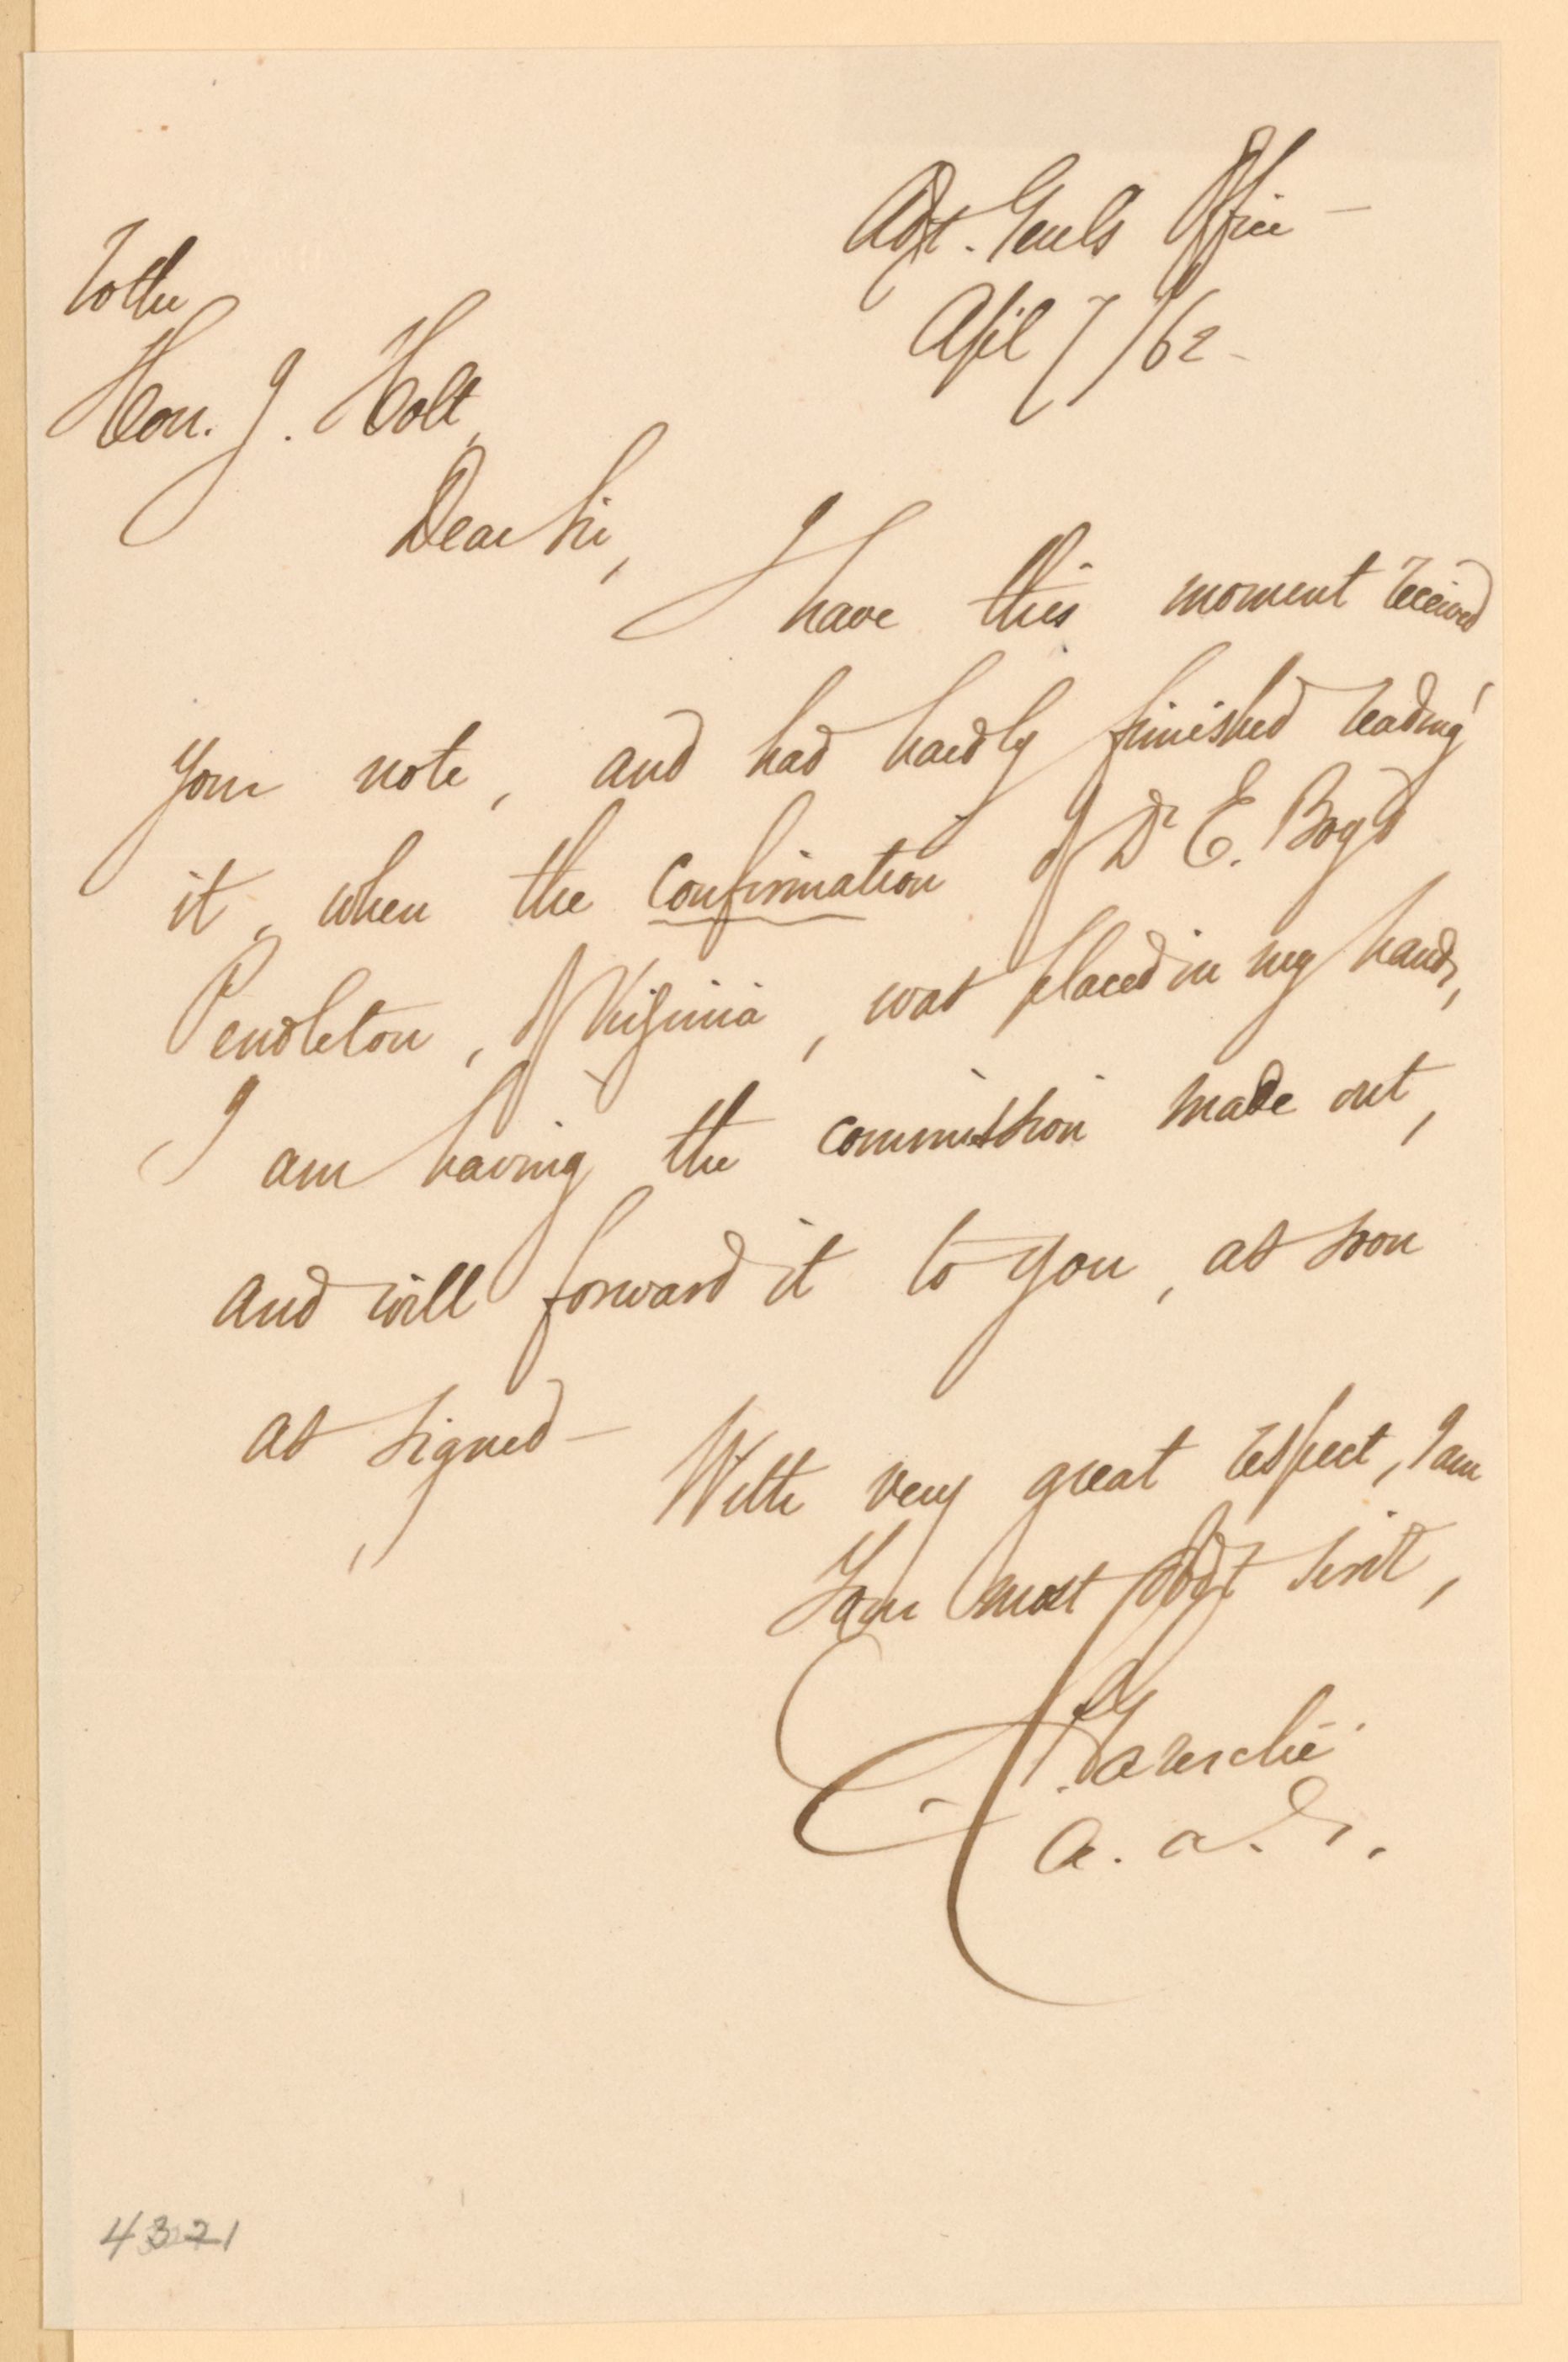 Adjt. Genls Office —
April 7/62 -
To the
Hon. J. Holt,
Dear Sir,
I have this moment received
your note, and had hardly finished reading
it, when the confirmation of Dr E. Boyd
Pendleton, of Virginia, was placed in my hands,
I am having the commission made out,
and will forward it to you, as soon
as signed —
With very great respect, I am
Your most obdt servt,
Garesché
A. A. G.
4321